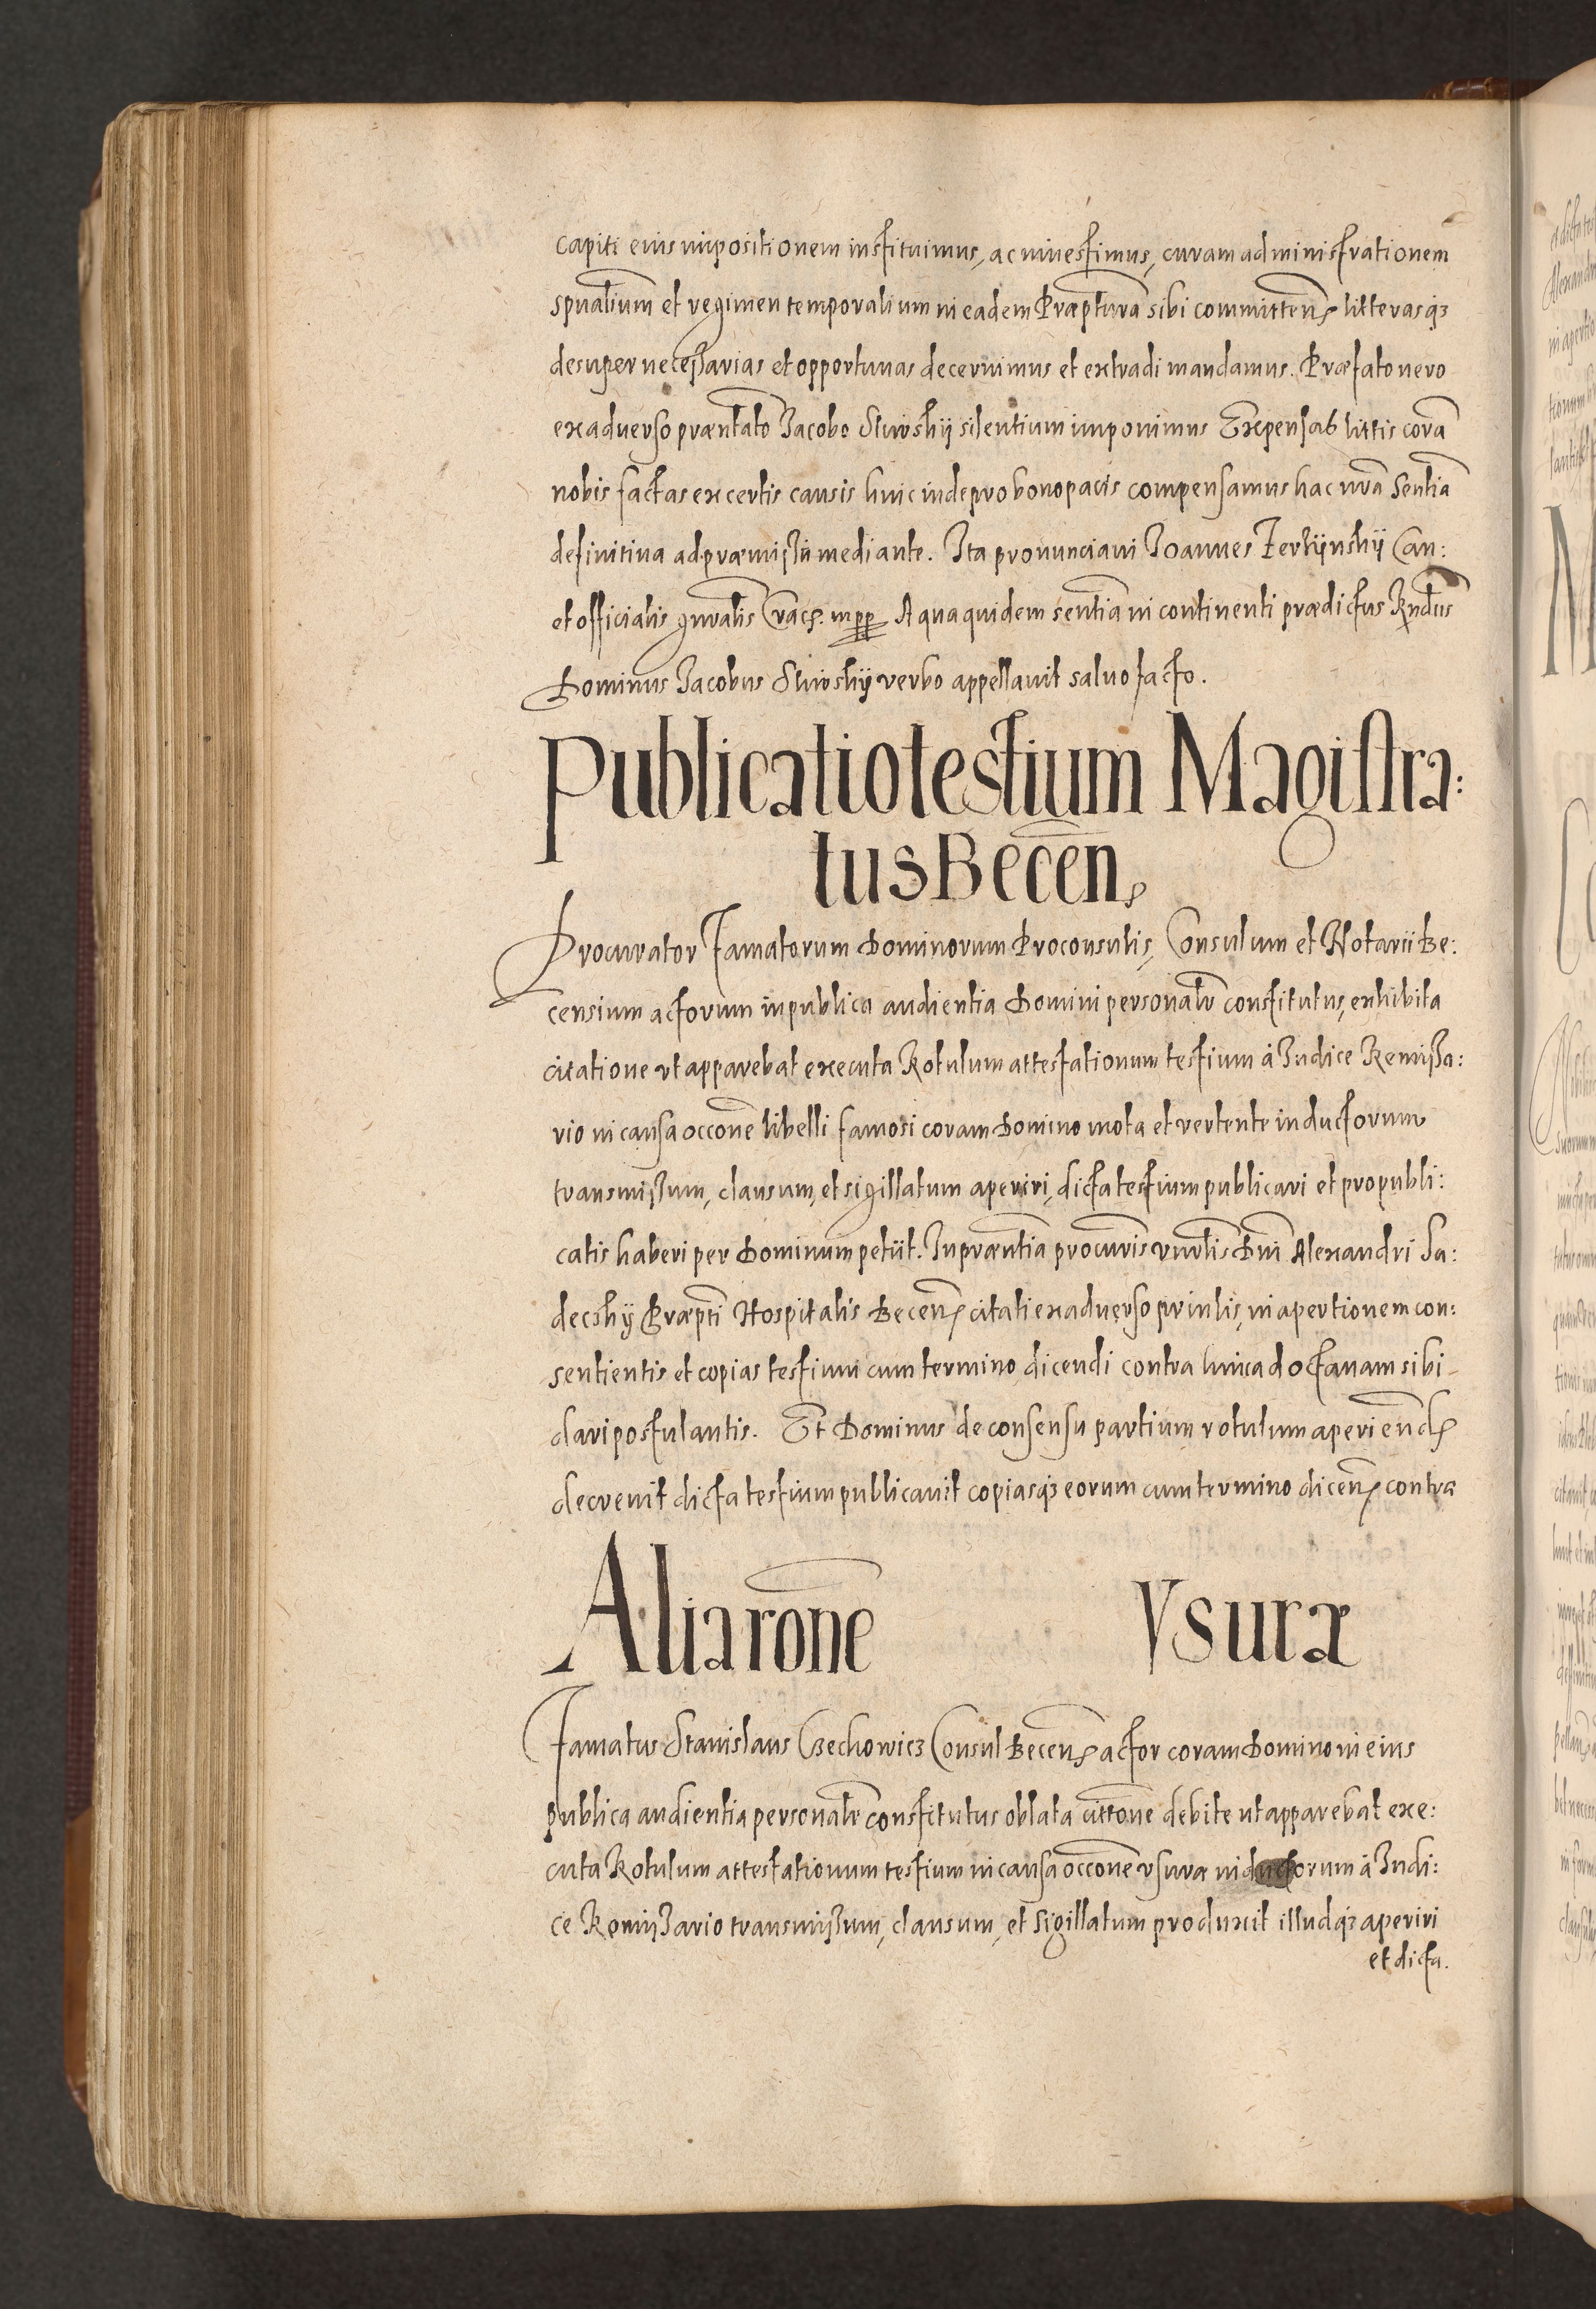 capiti eius impositionem instituimus, ac inuestimus, curam administrationem
spualium et regimen temporalium in eadem Præptura sibi committen. litterasqз
desuper necessarias et opportunas decernimus et extradi mandamus. Præfato uero
ex aduerso præntato Jacobo Sluoskij silentium imponimus Expensas littis cora
nobis factas ex certis causis huic inde pro bono pacis compensamus hac nra Sentia
definitiua ad præmissu mediante. Ita pronunciaui Joannes Ferkijnskij Can:
et officialis gnralis Crac. mpp A qua quidem sentia in continenti prædictus Rndus
Dominus Jacobus Sluoskij verbo appellauit saluo facto.
Publicatio testium Magistra:
tus Becen.
Procurator Famatorum Dominorum Proconsulis, Consulum et Notarii Be:
censium actorum in publica audientia Domini personalr constitutus, exhibita
citatione vt apparebat executa Rotulum attestationum testium â Judice Remissa:
rio in causa occone libelli famosi coram Domino mota et vertente inductorum
transmissum, clausum, et sigillatum aperiri, dicta testium publicari et pro publi:
catis haberi per Dominum petiit. In præntia procuris vnrlis Dni Alexandri Sa:
decskij Præpti Hospitalis Becen. citati ex aduerso prinlis, in apertionem con:
sentientis et copias testium cum termino dicendi contra huic ad octauam sibi
dari postulantis. Et Dominus de consensu partium rotulum aperiend.
decreuit dicta testium publicauit copiasqз eorum cum termino dicen. contra
Alia rone Vsuræ
Famatus Stanislaus Czechowicz Consul Becen. actor coram Domino in eius
publica audientia personalr constitutus oblata cittone debite ut apparebat exe:
cuta Rotulum attestationum testium in causa occone vsuræ inductorum â Judi:
ce Remissario transmissum, clausum, et sigillatum produxit illudqз aperiri
et dicta.